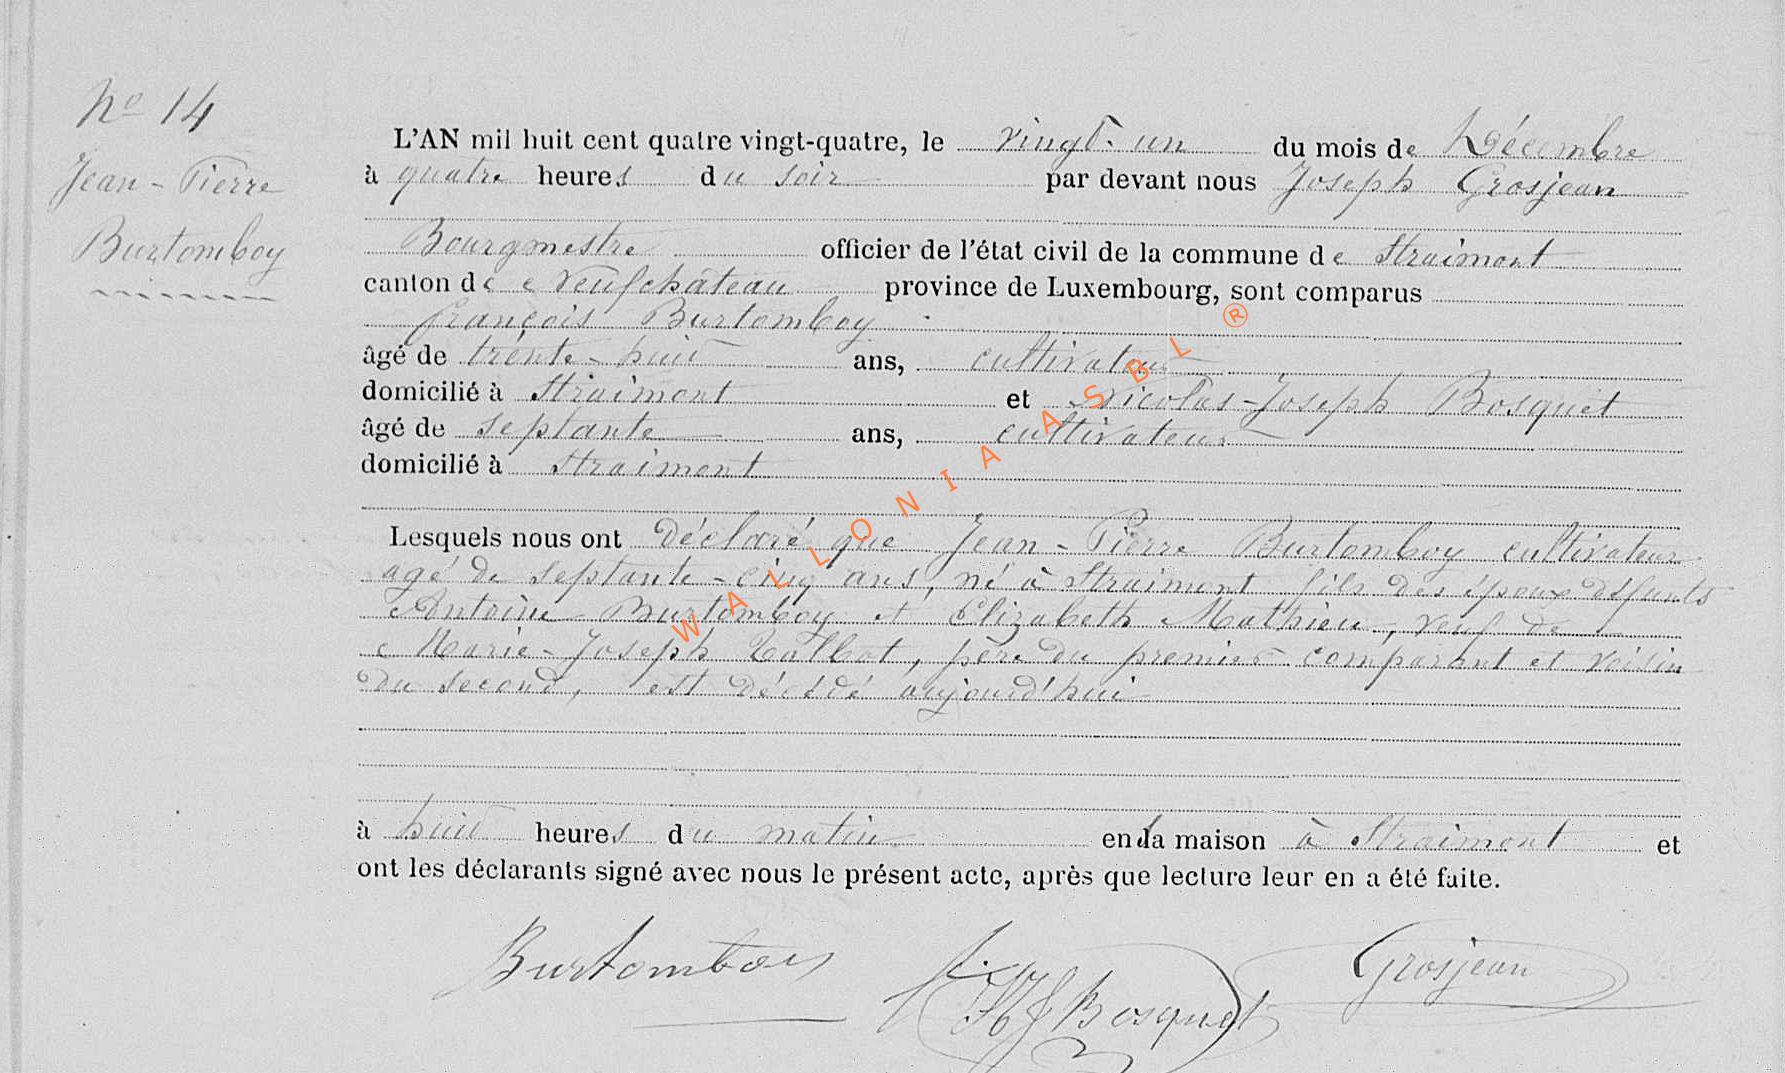 No 14
Jean-Pierre
Burtomboy
L'AN mil huit cent quatre vingt-quatre, le vingt-un du mois de Décembre
à quatre heures du soir par devant nous Joseph Grosjean
Bourgmestre officier de l'état civil de la commune de Straimont
canton de Neufchâteau province de Luxembourg, sont comparus
François Burtomboy
âgé de trente-huit ans, cultivateur
domicilié à Straimont et Nicolas-Joseph Bosquet
âgé de septante ans, cultivateur
domicilié à Straimont
Lesquels nous ont déclaré que Jean-Pierre Burtomboy cultivateur
agé de septante-cinq ans, né à Straimont fils des époux défunts
Antoine Burtomboy et Elizabeth Mathieu, veuf de
Marie-Joseph Talbot, père du premier comparant et voisin
du second, est décédé aujourd'hui
à huit heures du matin en la maison à Straimont et
ont les déclarants signé avec nous le présent acte, après que lecture leur en a été faite.
Burtomboy
NJ Bosquet
Grosjean
WALLONIA ASBL ®